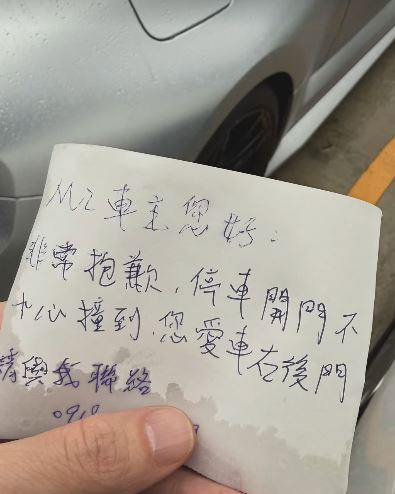 M2車主您好:
非常抱歉,停車開門不
小心撞到您愛車右後門
請與我聯絡
0918